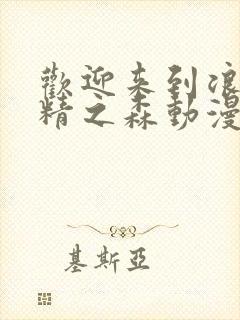 歡迎来到浪
精之森動漫
基斯亞